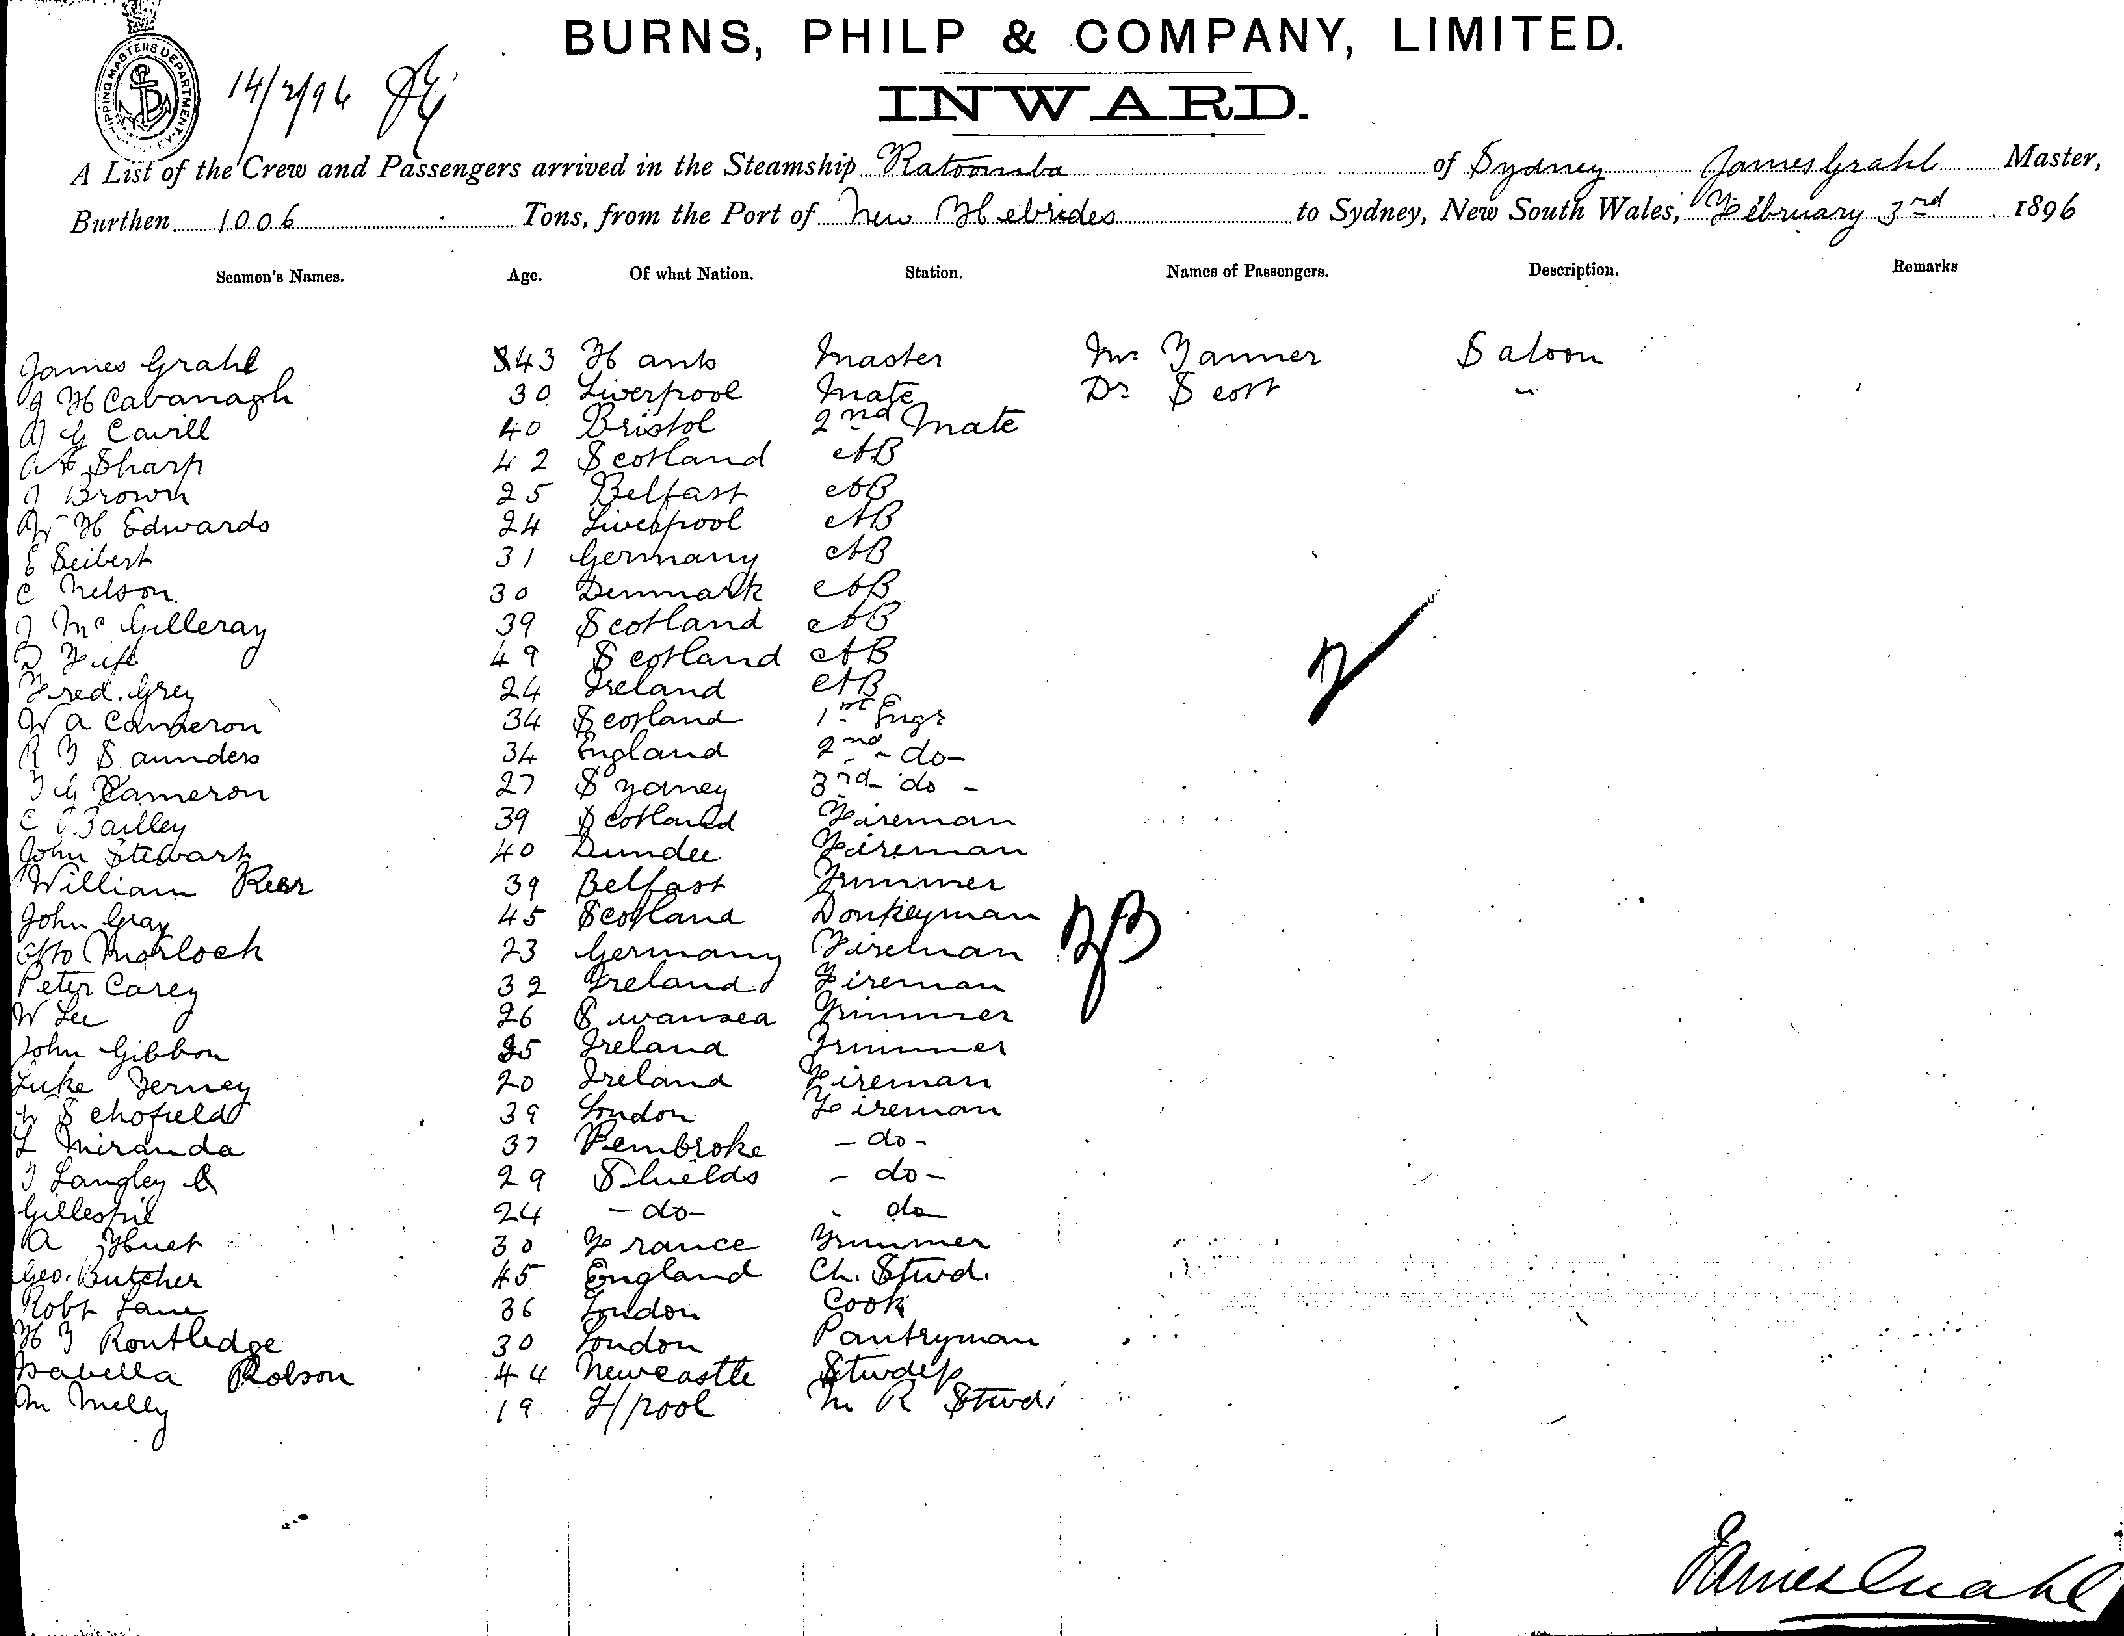 BURNS, PHILP & COMPANY, LIMITED.
SHIPPING MASTERS DEPARTMENT
14/2/96
INWARD.
A List of the Crew and Passengers arrived in the Steamship Katoomba of Sydney James Grahl Master,
Burthen 1006 Tons, from the Port of New Hebrides to Sydney, New South Wales, February 3rd 1896
Seamen's Names. Age. Of what Nation. Station. Names of Passengers. Description. Remarks
James Grahl 43 Hants Master Mr Tanner Saloon
J H Cabanagh 30 Liverpool Mate Dr Scott "
G Cavill 40 Bristol 2nd Mate
Sharp 42 Scotland AB
J Brown 25 Belfast AB
W H Edwards 24 Liverpool AB
E Seibert 31 Germany AB
C Nelson 30 Denmark AB
J McGilleray 39 Scotland AB
D Fife 49 Scotland AB
Fred. Grey 24 Ireland AB
W A Cameron 34 Scotland 1st Engr
R T Saunders 34 England 2nd - do -
T G Cameron 27 Sydney 3rd - do -
C Bailley 39 Scotland Fireman
John Stewart 40 Dundee Fireman
William Kerr 39 Belfast Trimmer
John Gray 45 Scotland Donkeyman
Otto Morloch 23 Germany Fireman
Peter Carey 32 Ireland Fireman
W Lee 26 Swansea Trimmer
John Gibbon 35 Ireland Trimmer
Luke Terney 20 Ireland Fireman
Schofield 39 London Fireman
L Miranda 37 Pembroke - do -
T Langley 29 Shields - do -
Gillespie 24 - do - do
A Huet 30 France Trimmer
Geo. Butcher 45 England Ch. Stwd.
Robt Lane 36 London Cook
H T Routledge 30 London Pantryman
Isabella Robson 44 Newcastle Stwdess
M Melly 19 L/pool M R Stwd
James Grahl